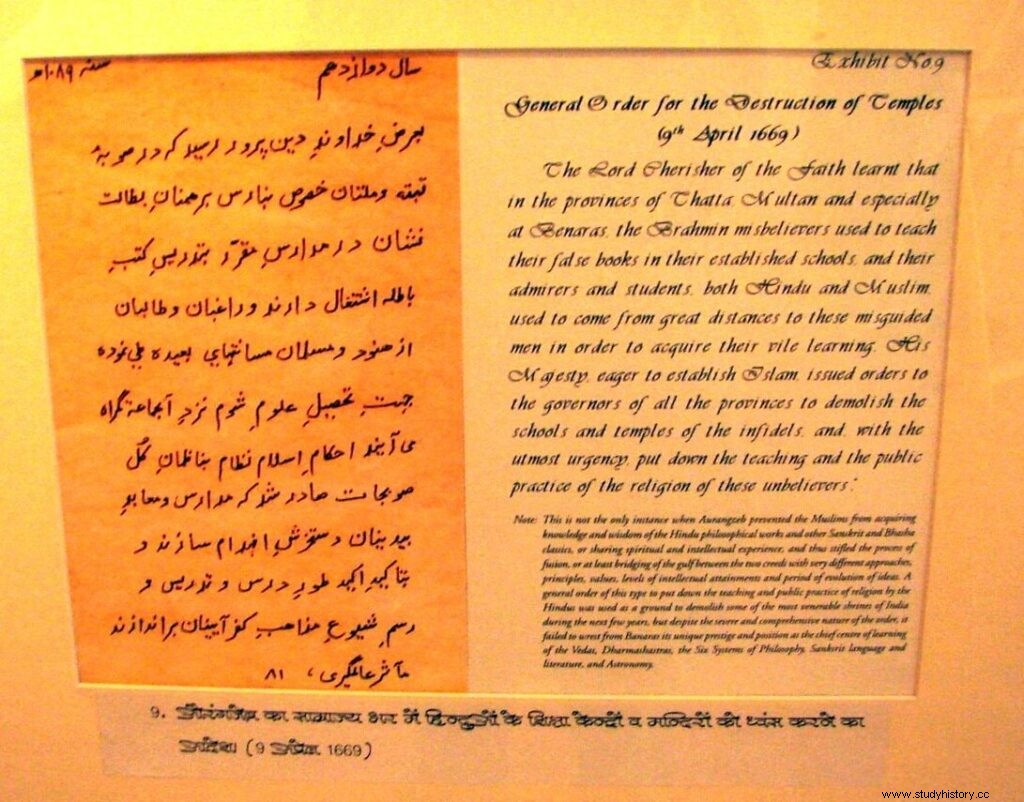 سنه ۱۰۸۹ھ
سال دوازدهم
بعرضِ خداوندِ دین پرور رسید که در صوبهٔ
تهته وملتان خصوص بنارس برهمنانِ بطالت
نشان در مدارسِ مقرّر بتدریسِ کتبِ
باطله اشتغال دارند وراغبان وطالبان
از هنود ومسلمان مسافتهای بعیده طی نموده
جهتِ تحصیلِ علومِ شوم نزدِ آنجماعۀ گمراه
می آیند احکام اسلام نظام بناظمانِ کُل
صوبجات صادر شد که مدارس ومعابدِ
بیدینان دستخوشِ انهدام سازند و
بتاکیدِ اکید طورِ درس و تدریس و
رسمِ شیوعِ مذاهبِ کفر آیینان براندازند
مآثرِ عالمگیری، ۸۱
Exhibit No.9
General Order for the Destruction of Temples
(9th April 1669)
The Lord Cherisher of the Faith learnt that
in the provinces of Thatta, Multan and especially
at Benaras, the Brahmin misbelievers used to teach
their false books in their established schools, and their
admirers and students, both Hindu and Muslim,
used to come from great distances to these misguided
men in order to acquire their vile learning. His
Majesty, eager to establish Islam, issued orders to
the governors of all the provinces to demolish the
schools and temples of the infidels, and, with the
utmost urgency, put down the teaching and the public
practice of the religion of these unbelievers".
Note: This is not the only instance when Aurangzeb prevented the Muslims from acquiring
knowledge and wisdom of the Hindu philosophical works and other Sanskrit and Bhasha
classics, or sharing spiritual and intellectual experience, and thus stifled the process of
fusion, or at least bridging of the gulf between the two creeds with very different approaches,
principles, values, levels of intellectual attainments and period of evolution of ideas. A
general order of this type to put down the teaching and public practice of religion by the
Hindus was used as a ground to demolish some of the most venerable shrines of India
during the next few years, but despite the severe and comprehensive nature of the order, it
failed to wrest from Banaras its unique prestige and position as the chief centre of learning
of the Vedas, Dharmashastras, the Six Systems of Philosophy, Sanksrit language and
literature, and Astronomy.
9. औरंगजेब का साम्राज्य भर में हिन्दुओं के शिक्षा केन्द्रों व मन्दिरों को ध्वंस करने का
आदेश। (9 अप्रैल 1669)
www.studyhistory.cc